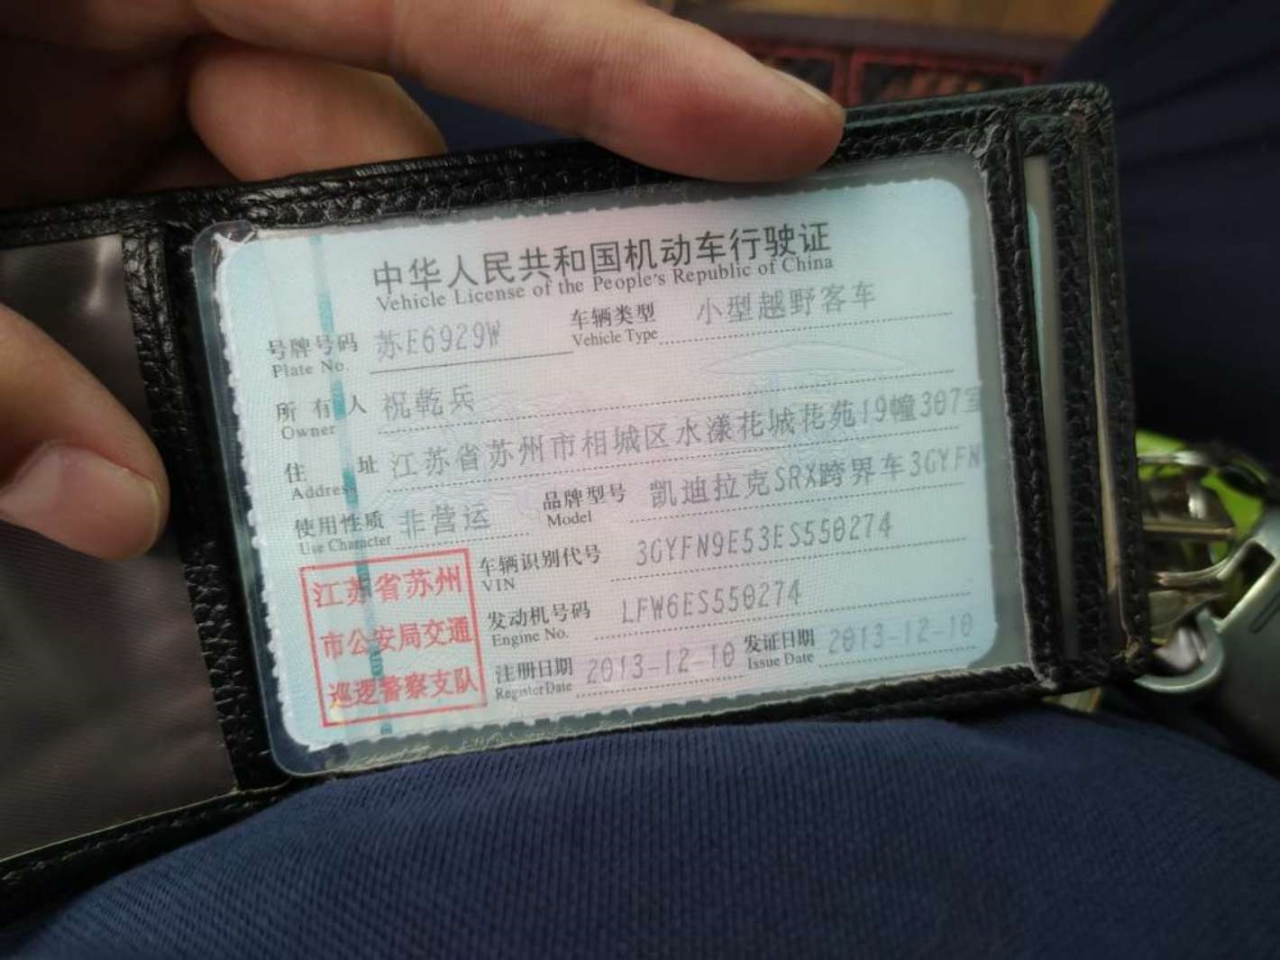 中华人民共和国机动车行驶证
Vehicle License of the People's Republic of China
号牌号码 苏E6929W 车辆类型 小型越野客车
Plate No. Vehicle Type
所有人 祝乾兵
Owner
住址 江苏省苏州市相城区水漾花城花苑19幢307室
Address
使用性质 非营运 品牌型号 凯迪拉克SRX跨界车3GYFN
Use Character Model
车辆识别代号 3GYFN9E53ES550274
VIN
发动机号码 LFW6ES550274
Engine No.
注册日期 2013-12-10 发证日期 2013-12-10
Register Date Issue Date
江苏省苏州
市公安局交通
巡逻警察支队